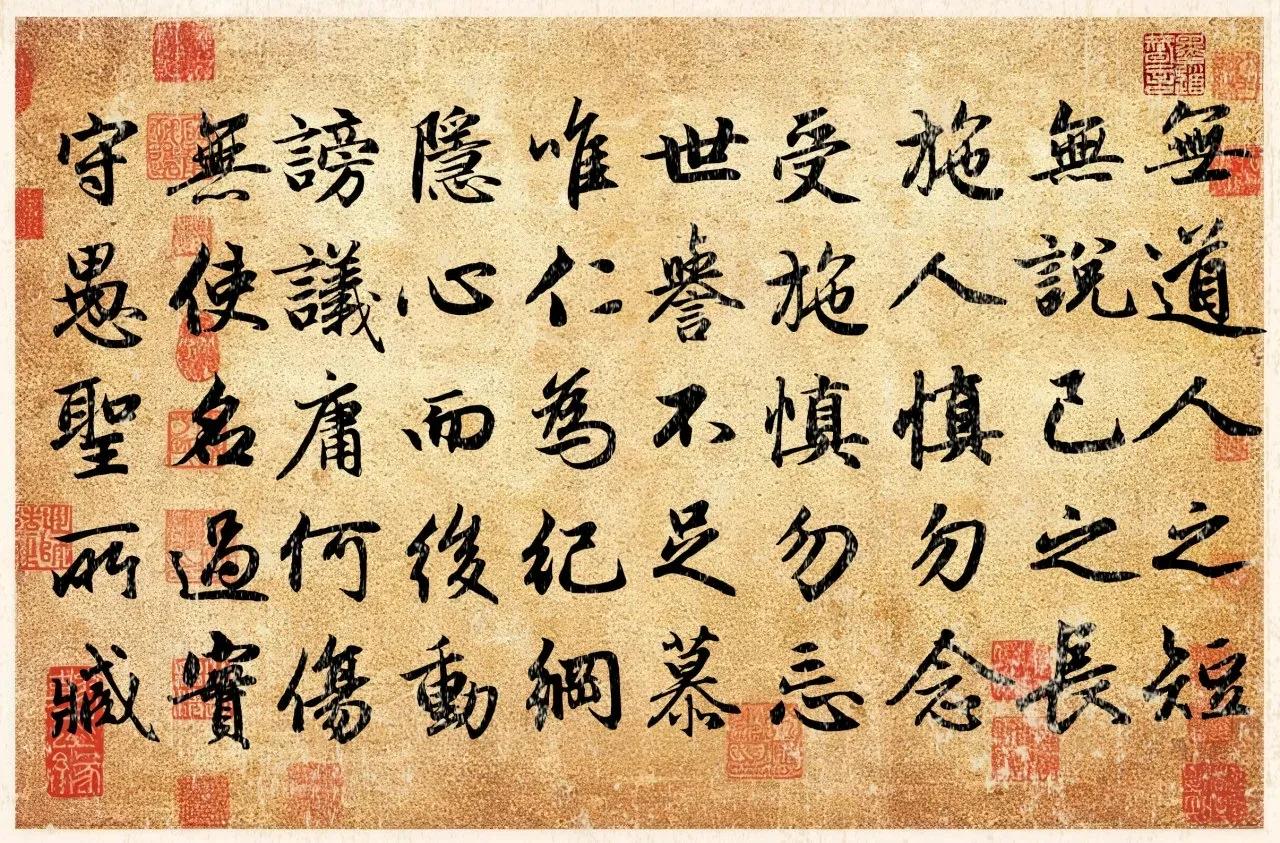 無道人之短
無說己之長
施人慎勿念
受施慎勿忘
世譽不足慕
唯仁為紀綱
隱心而後動
謗議庸何傷
無使名過實
守愚聖所臧